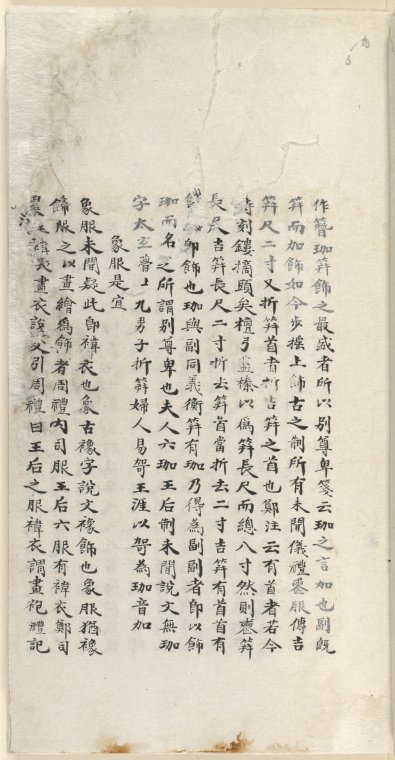 作簪珈笄飾之最盛者所以別尊卑箋云珈之言加也副既
笄而加飾如今步搖上飾古之制所有未聞儀禮喪服傳吉
笄尺二寸又折笄首者折吉笄之首也鄭注云有首者若今
時刻鏤摘頭矣檀弓盖榛以爲笄長尺而總八寸然則喪笄
長尺吉笄長尺二寸折去笄首當折去二寸吉笄有首首有
飾卽飾也珈與副同義衡笄有珈乃得為副副者卽以飾
珈而名之所謂別尊卑也夫人六珈王后制未聞說文無珈
字太玄瞢上九男子折笄婦人易哿王涯以哿為珈音加
象服是宜
象服未聞疑此卽褘衣也象古襐字說文襐飾也象服猶襐
飾服之以畫繪爲飾者周禮內司服王后六服有褘衣鄭司
農褘衣畫衣說文引周禮曰王后之服褘衣謂畫袍禮記
5